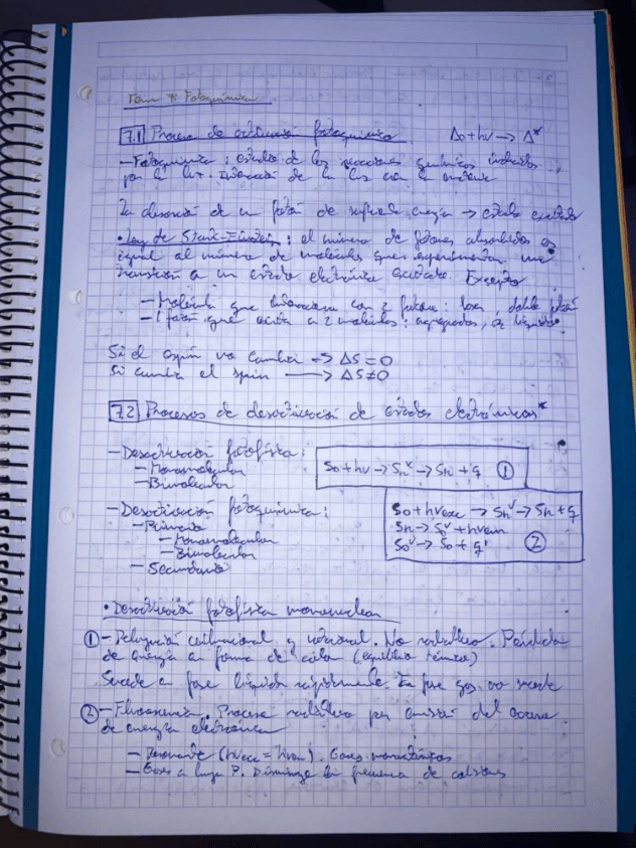 Tema 7: Fotoquímica
7.1 Proceso de activación fotoquímica A₀+hν → A*
- Fotoquímica: estudio de las reacciones químicas inducidas
por la luz. Interacción de la luz con la materia
La absorción de un fotón de suficiente energía → estado excitado
• Ley de Stark-Einstein: el número de fotones absorbidos es
igual al número de moléculas que experimentan una
transición a un estado electrónico excitado. Excepto
- Molécula que interacciona con 2 fotones: láser, doble fotón
- 1 fotón que excita a 2 moléculas: agregados, O₂ líquido
Si el espín no cambia → ΔS=0
Si cambia el spin → ΔS≠0
7.2 Procesos de desactivación de estados electrónicos*
- Desactivación fotofísica:
- Monomolecular
- Bimolecular
S₀+hν → Sₙᵛ → Sₙ+q ①
- Desactivación fotoquímica:
- Primaria
- Monomolecular
- Bimolecular
- Secundaria
S₀+hνexc → Sₙᵛ → Sₙ+q
Sₙ → S₀ᵛ+hνem
S₀ᵛ → S₀+q' ②
• Desactivación fotofísica mononuclear
① - Relajación vibracional y rotacional. No radiativo. Pérdida
de energía en forma de calor (equilibrio térmico)
Sucede en fase líquida rápidamente. En fase gas no sucede
② - Fluorescencia. Proceso radiativo por emisión del exceso
de energía electrónica
- Resonante (hνexc = hνem). Gases monoatómicos
- Gases a baja P. Disminuye la frecuencia de colisiones